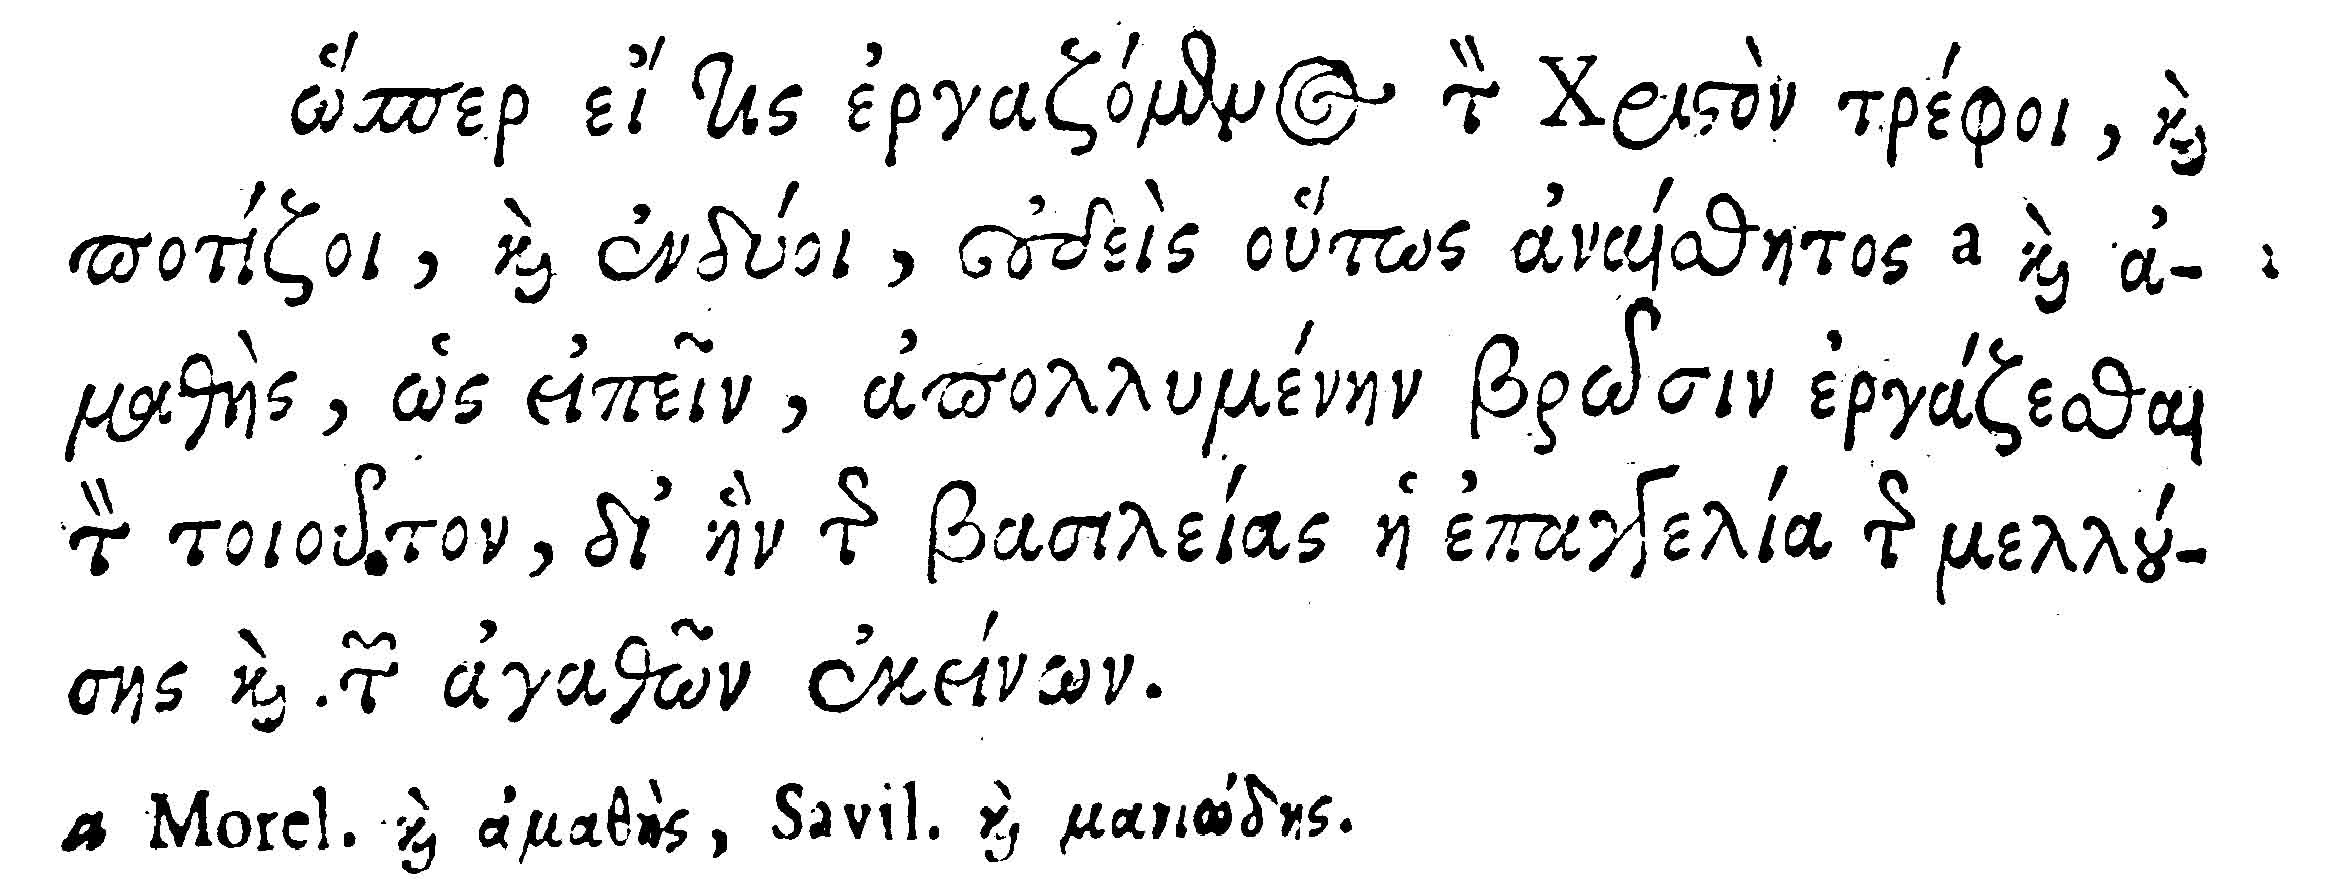 ὥπερ εἴ τις ἐργαζόμενος τὸν Χριστὸν τρέφοι, καὶ
ποτίζοι, καὶ ἐνδύοι, οὐδεὶς οὕτως ἀναίσθητος a καὶ ἀ-
μαθὴς, ὡς εἰπεῖν, ἀπολλυμένην βρῶσιν ἐργάζεσθαι
τὸν τοιοῦτον, δι' ἣν τῆς βασιλείας ἡ ἐπαγγελία τῆς μελλού-
σης καὶ τῶν ἀγαθῶν ἐκείνων.
a Morel. καὶ ἀμαθὴς, Savil. καὶ μανιώδης.